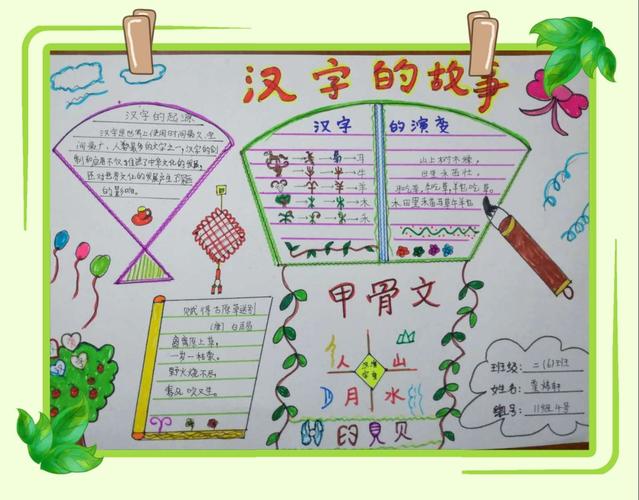 汉字的故事
汉字的起源
汉字是世界上使用时间最久、空
间最广、人数最多的文字之一,汉字的创
制和应用不仅推进了中华文化的发展,
还对世界文化的发展产生了深远
的影响。
汉字的演变
马
牛
羊
木
禾
山上树木绿,
田里禾苗壮。
赋得古原草送别
(唐) 白居易
离离原上草,
一岁一枯荣。
野火烧不尽,
春风吹又生。
甲骨文
人
山
月
水
的 見 贝
班级: 二(6)班
姓名:
组号: 11组 4号